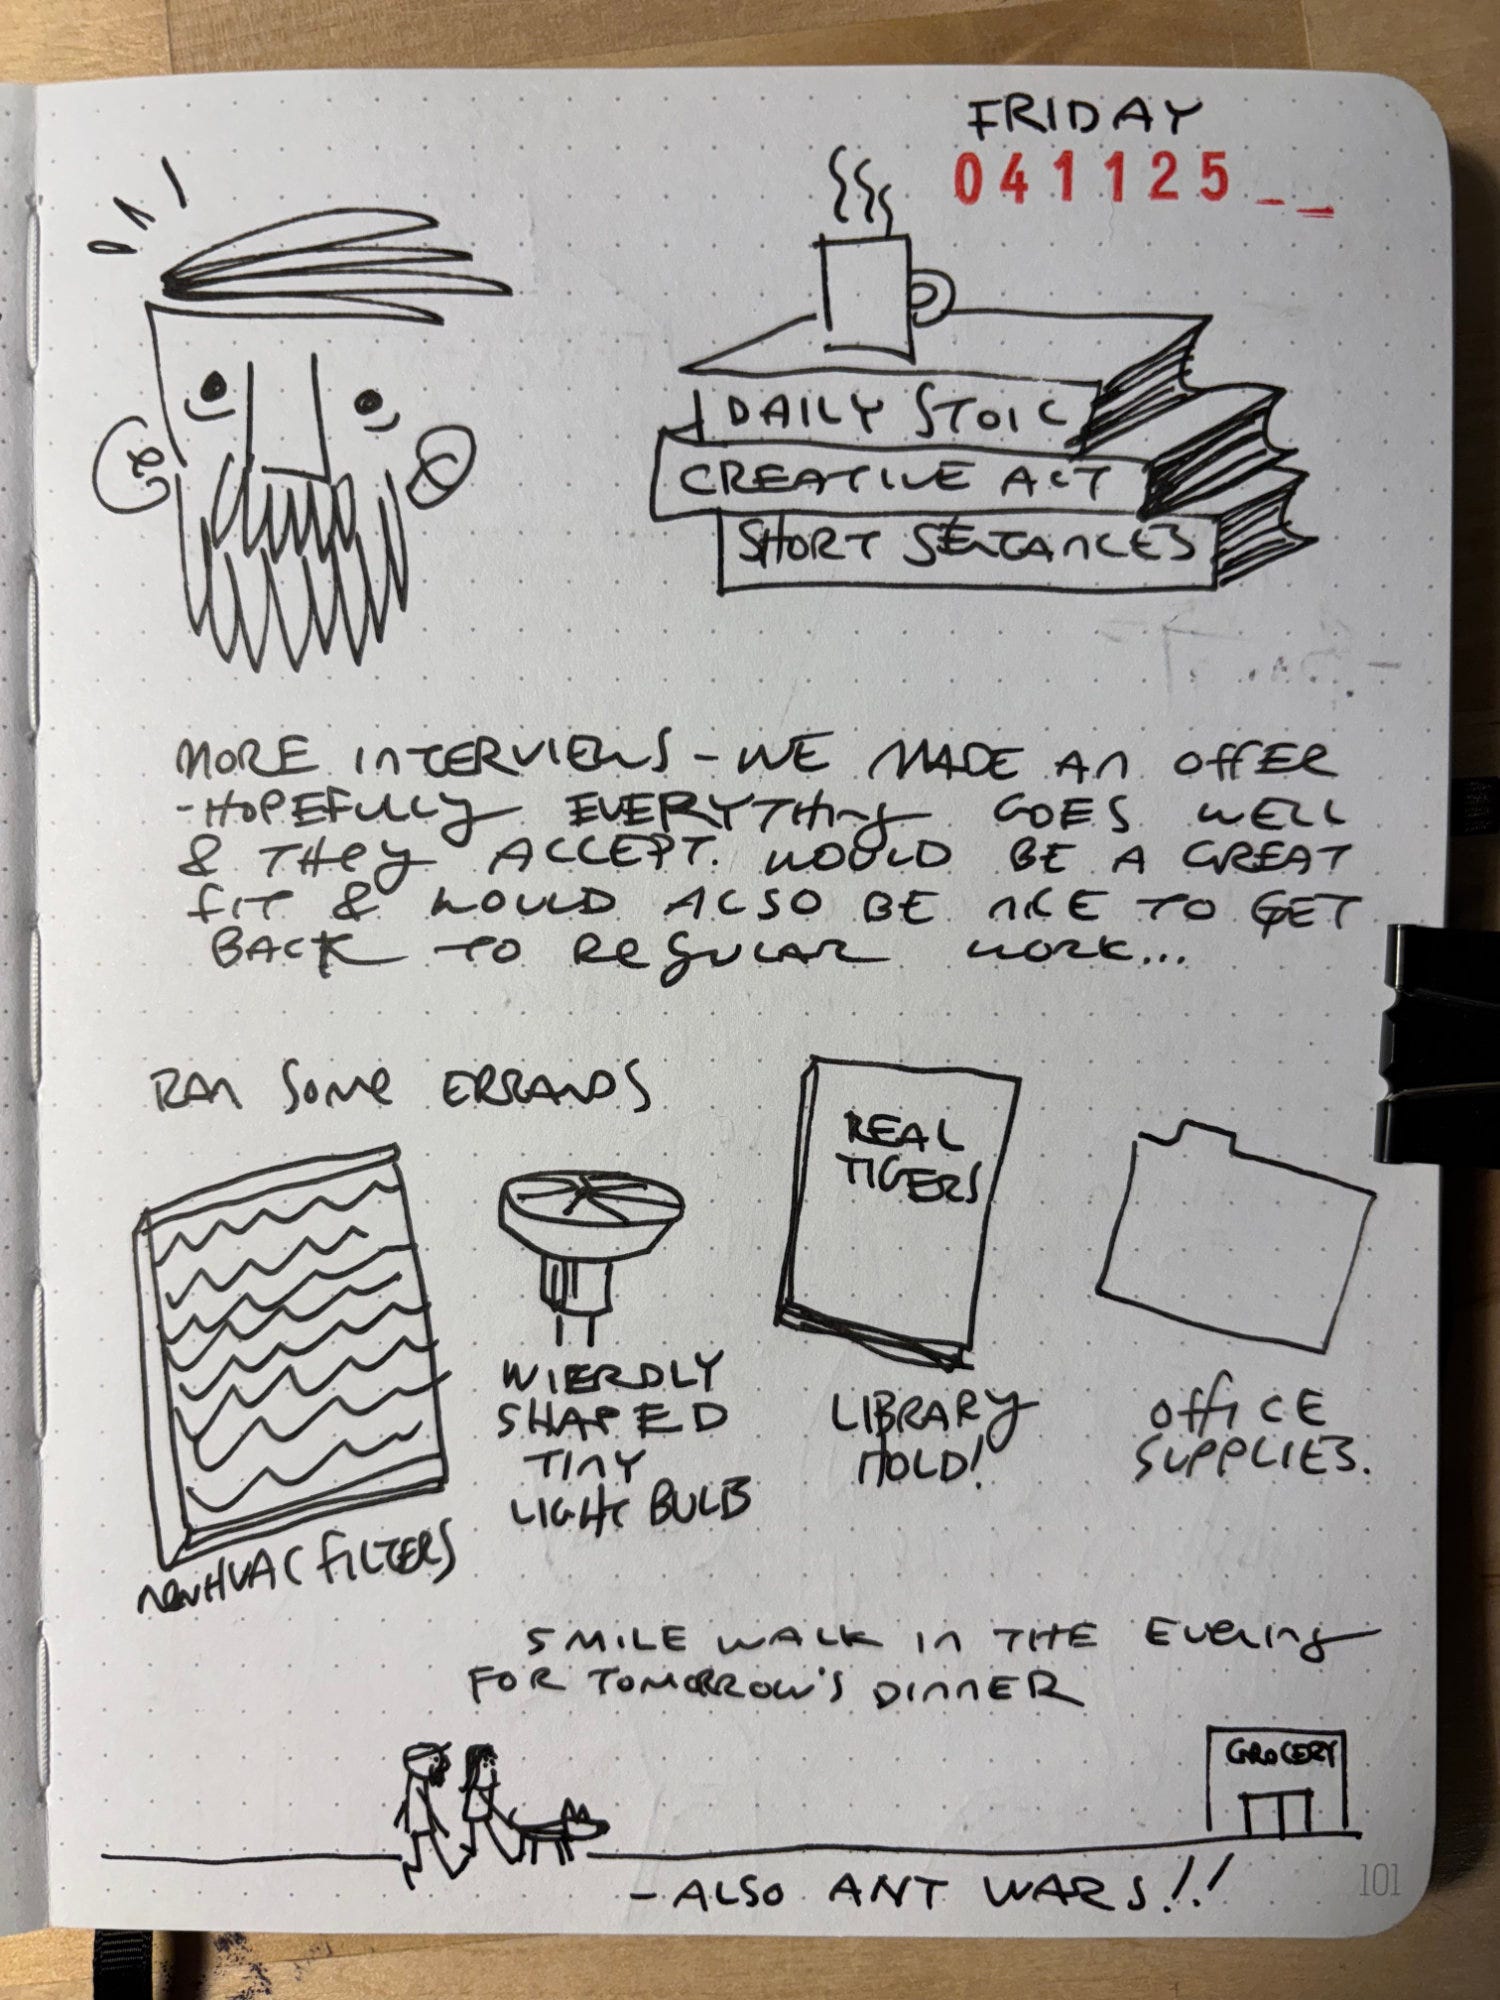 FRIDAY
041125__
DAILY STOIC
CREATIVE ACT
SHORT SENTANCES
MORE INTERVIEWS - WE MADE AN OFFER
- HOPEFULLY EVERYTHING GOES WELL
& THEY ACCEPT. WOULD BE A GREAT
FIT & WOULD ALSO BE NICE TO GET
BACK TO REGULAR WORK...
RAN SOME ERRANDS
REAL
TIGERS
NEW HVAC FILTERS
WIERDLY
SHAPED
TINY
LIGHT BULB
LIBRARY
HOLD!
OFFICE
SUPPLIES.
5 MILE WALK IN THE EVENING
FOR TOMORROW'S DINNER
GROCERY
- ALSO ANT WARS!!
101